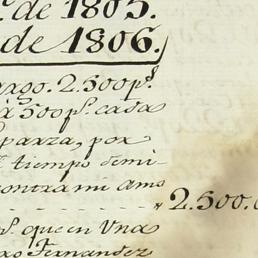 de 1805.
de 1806.
argo. 2.500 p.s
à 500 p.s cada
parza, por
tiempo demi-
contra mi amo
2.500.
p.s que en Una
Fernandez